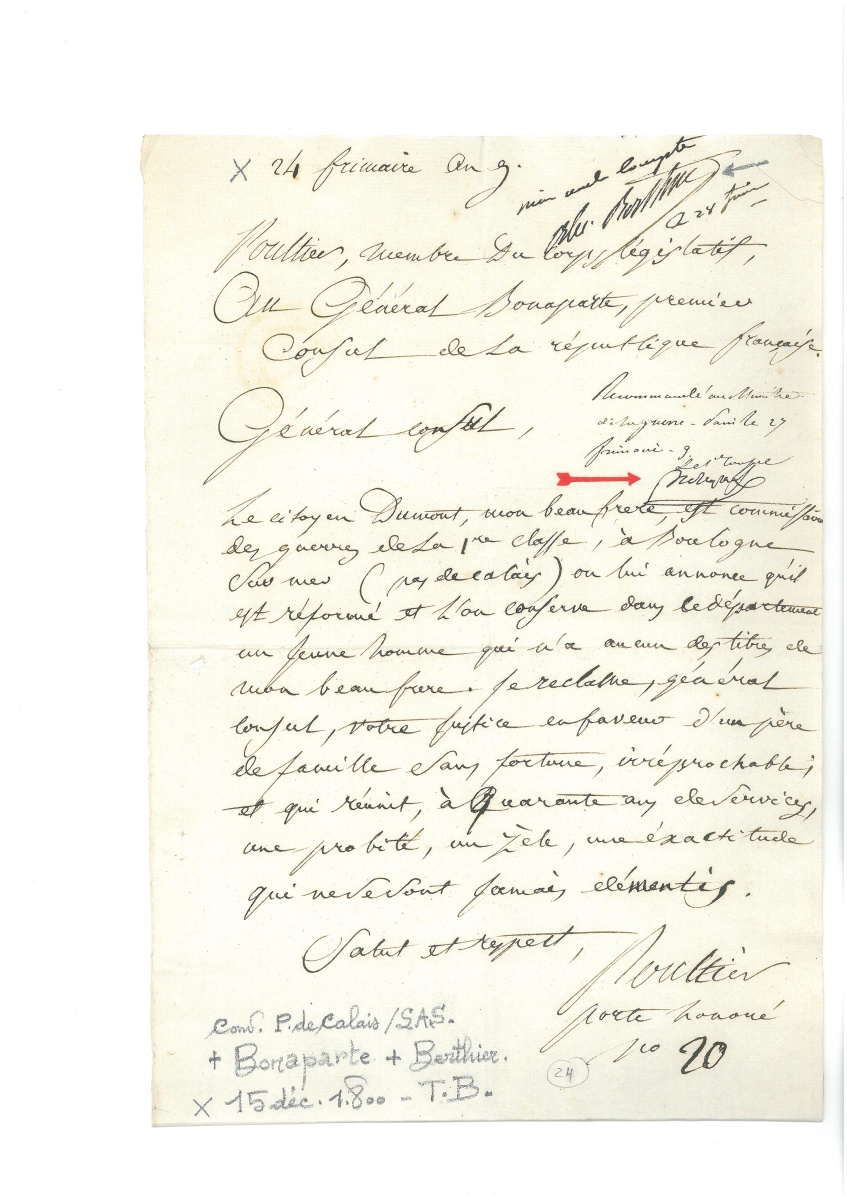 x 24 frimaire an 9.
compte
Alex. Berthier
Le 28 frim
Poultier, membre Du Corps législatif,
Au Général Bonaparte, premier
Consul de la république française.
Général consul,
Recommandé au Ministre
de la guerre - Paris le 27
frimaire - 9.
Le 1er Consul
Bonaparte
Le citoyen Dumont, mon beau frere, est commissaire
des guerres de la 1re classe, à Boulogne
sur mer (pas de calais) on lui annonce qu'il
est réformé et l'on conserve dans le département
un jeune homme qui n'a aucun des titres de
mon beau frere. Je reclame, général
consul, votre justice en faveur d'un père
de famille sans fortune, irréprochable,
et qui réunit, à Quarante ans de services,
une probité, un zele, une éxactitude
qui ne se sont jamais démentis.
Salut et respect,
Poultier
porte honoré
no 20
Conv. P. de Calais / S.A.S.
+ Bonaparte + Berthier.
24
x 15 déc. 1.800 - T.B.